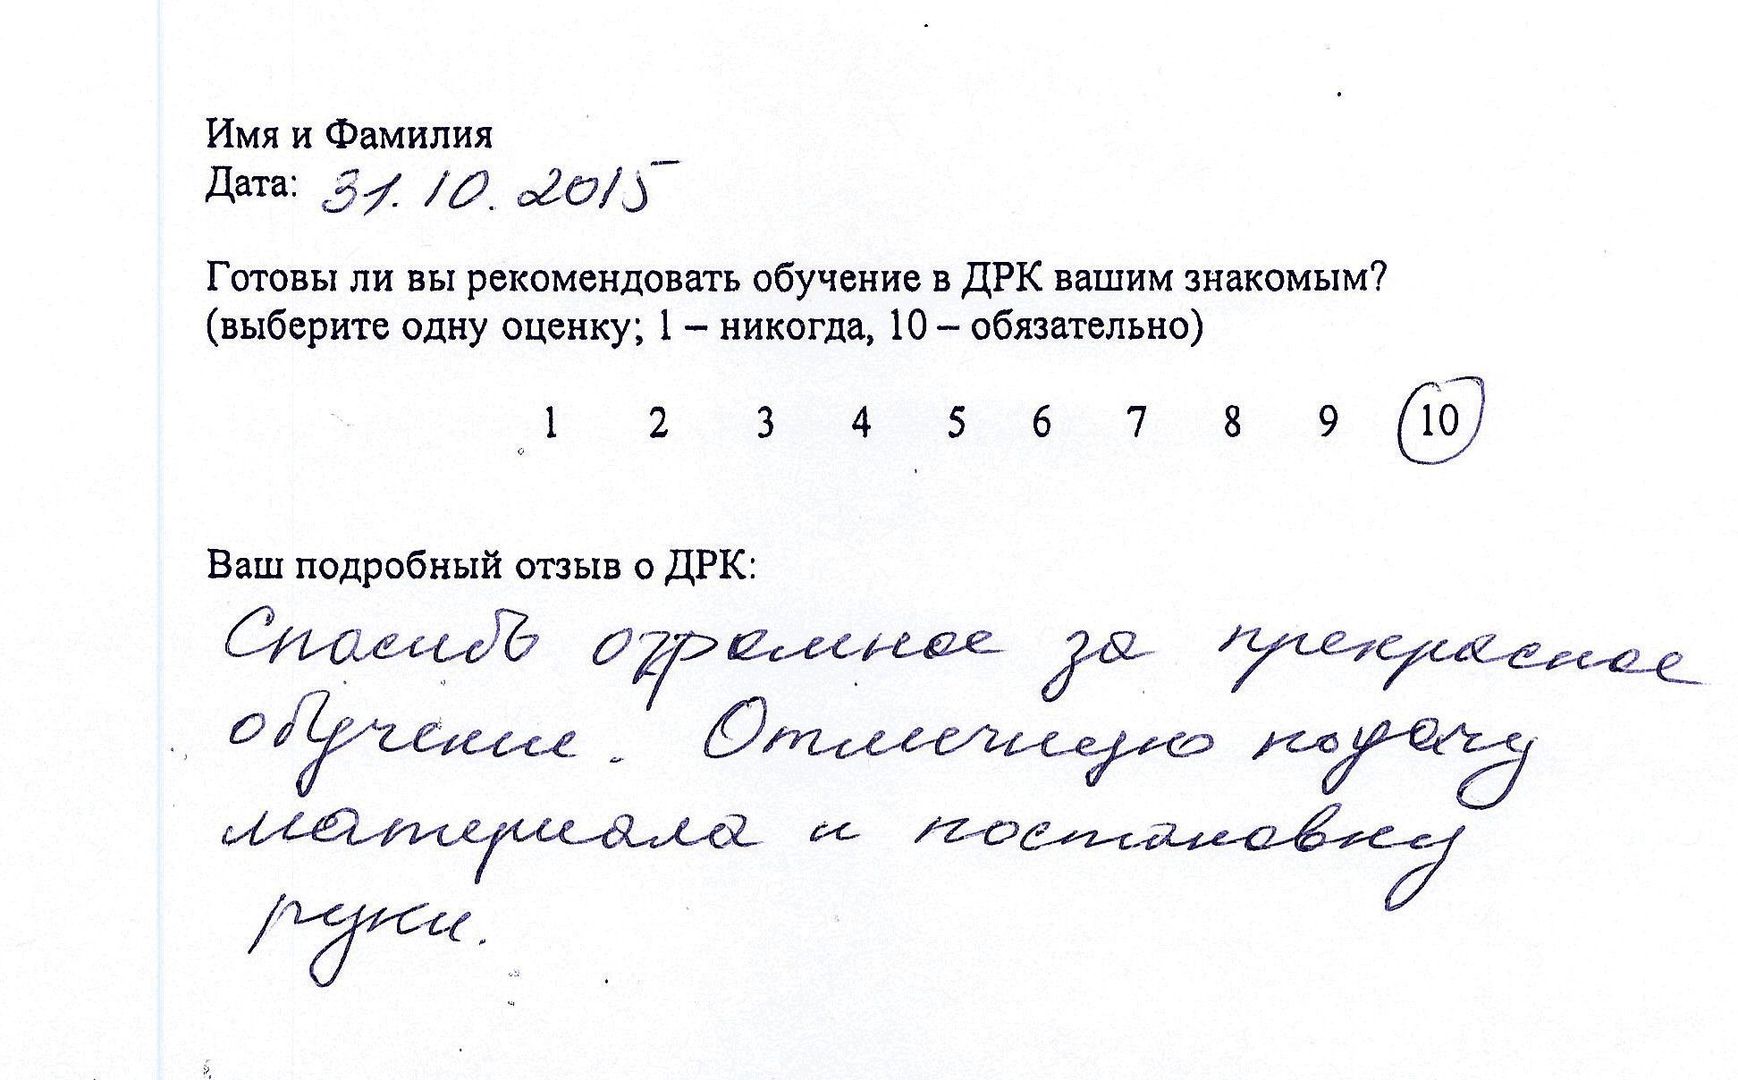 Имя и Фамилия
Дата: 31.10.2015
Готовы ли вы рекомендовать обучение в ДРК вашим знакомым?
(выберите одну оценку; 1 – никогда, 10 – обязательно)
1 2 3 4 5 6 7 8 9 10
Ваш подробный отзыв о ДРК:
Спасибо огромное за прекрасное
обучение. Отличную подачу
материала и постановку
руки.